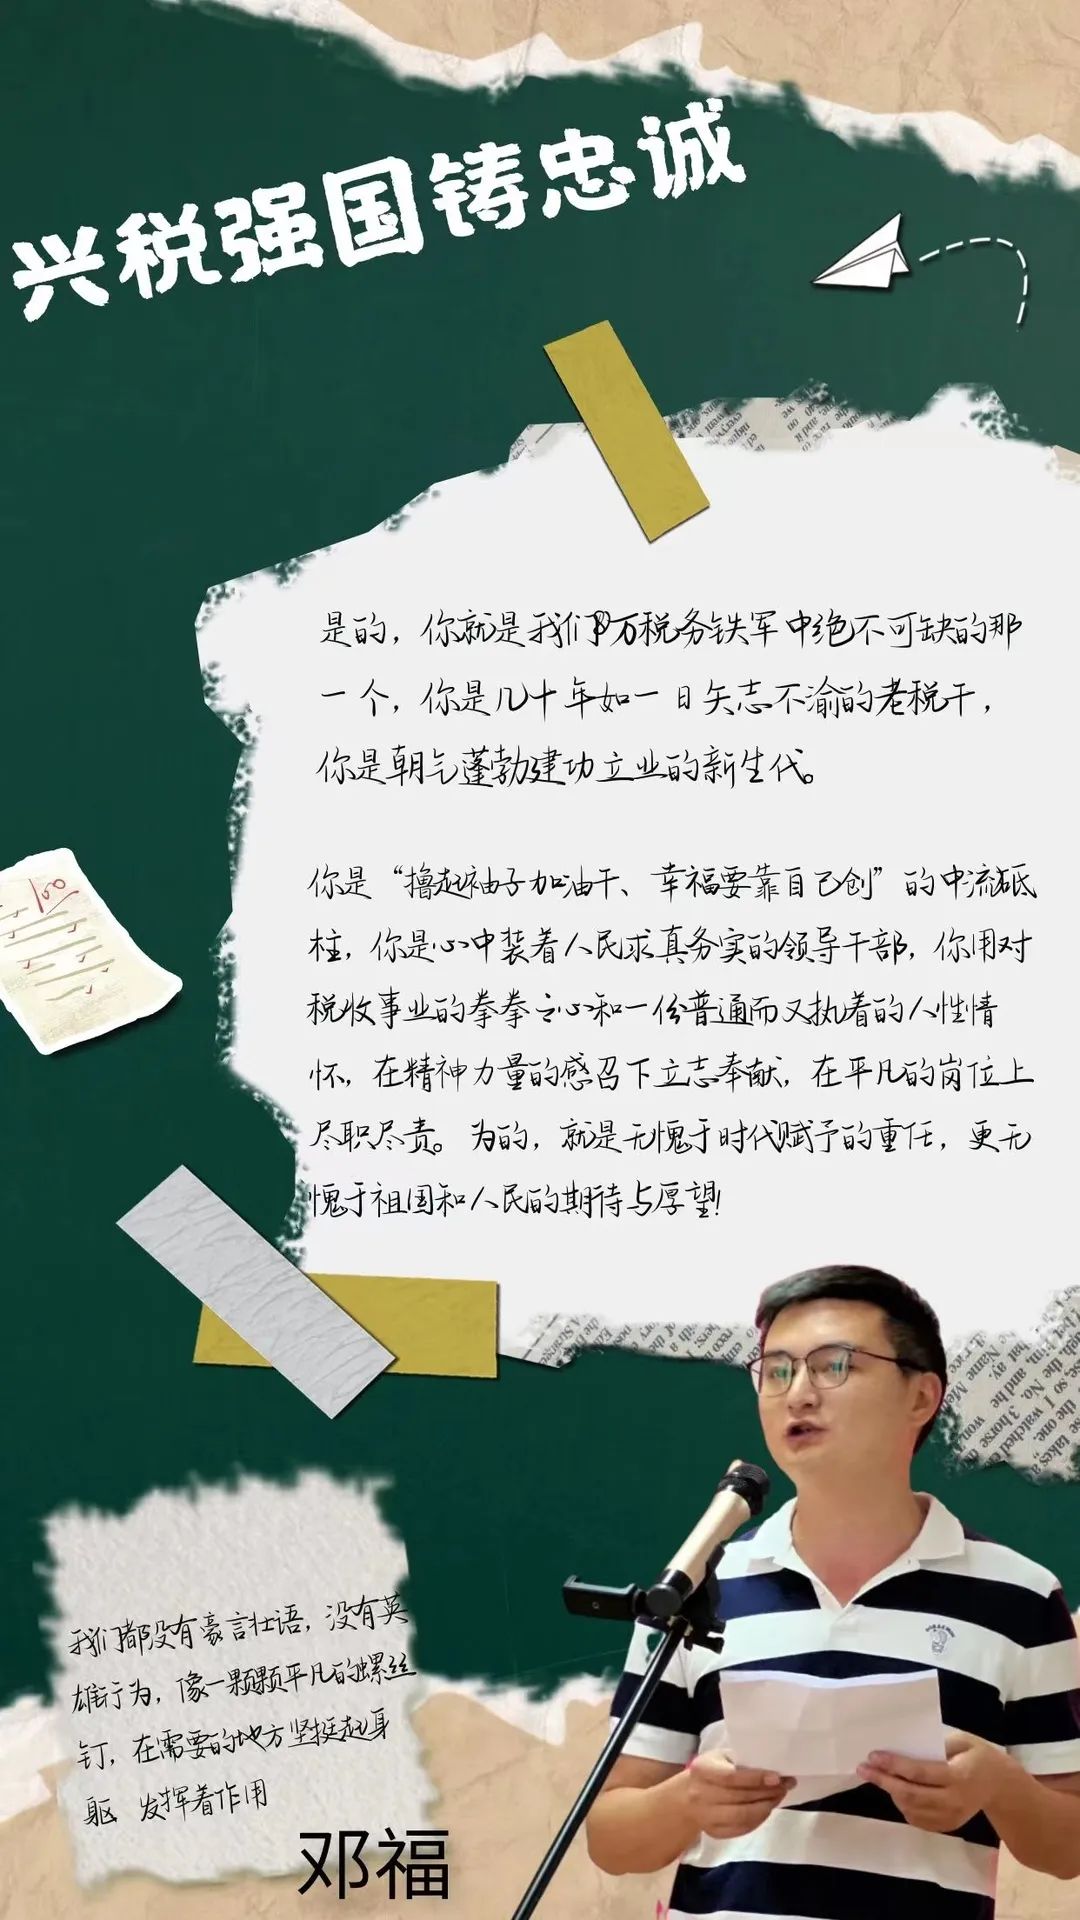 兴税强国铸忠诚
是的，你就是我们万税务铁军中绝不可缺的那
一个，你是几十年如一日矢志不渝的老税干，
你是朝气蓬勃建功立业的新生代。
你是“撸起袖子加油干、幸福要靠自己创”的中流砥
柱，你是心中装着人民求真务实的领导干部，你用对
税收事业的拳拳之心和一份普通而又执着的人性情
怀，在精神力量的感召下立志奉献，在平凡的岗位上
尽职尽责。为的，就是无愧于时代赋予的重任，更无
愧于祖国和人民的期待与厚望！
我们都没有豪言壮语，没有英
雄行为，像一颗颗平凡的螺丝
钉，在需要的地方坚挺起身
躯 发挥着作用
邓福